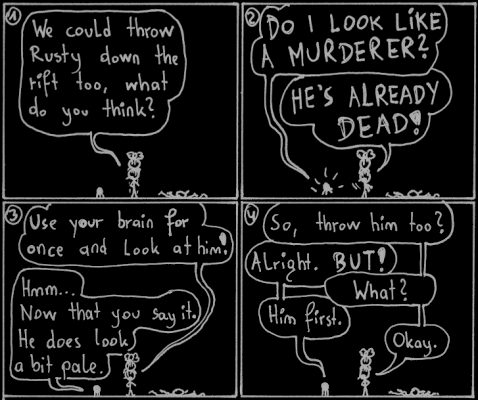 1
We could throw
Rusty down the
rift too, what
do you think?
2
DO I LOOK LIKE
A MURDERER?
HE'S ALREADY
DEAD!
3
Use your brain for
once and look at him!
Hmm...
Now that you say it.
He does look
a bit pale.
4
So, throw him too?
Alright. BUT!
What?
Him first.
Okay.